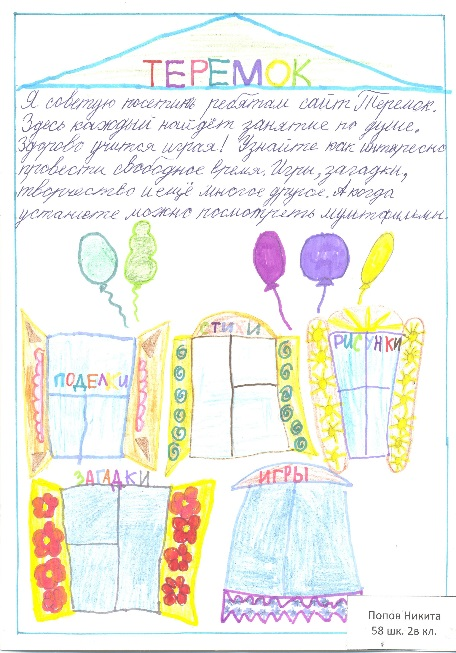 ТЕРЕМОК
Я советую посетить ребятам сайт Теремок.
Здесь каждый найдёт занятие по душе.
Здорово учится играя! Узнайте как интересно
провести свободное время. Игры, загадки,
творчество и ещё многое другое. А когда
устанете можно посмотреть мультфильмы.
СТИХИ
РИСУНКИ
ПОДЕЛКИ
ЗАГАДКИ
ИГРЫ
Попов Никита
58 шк. 2в кл.